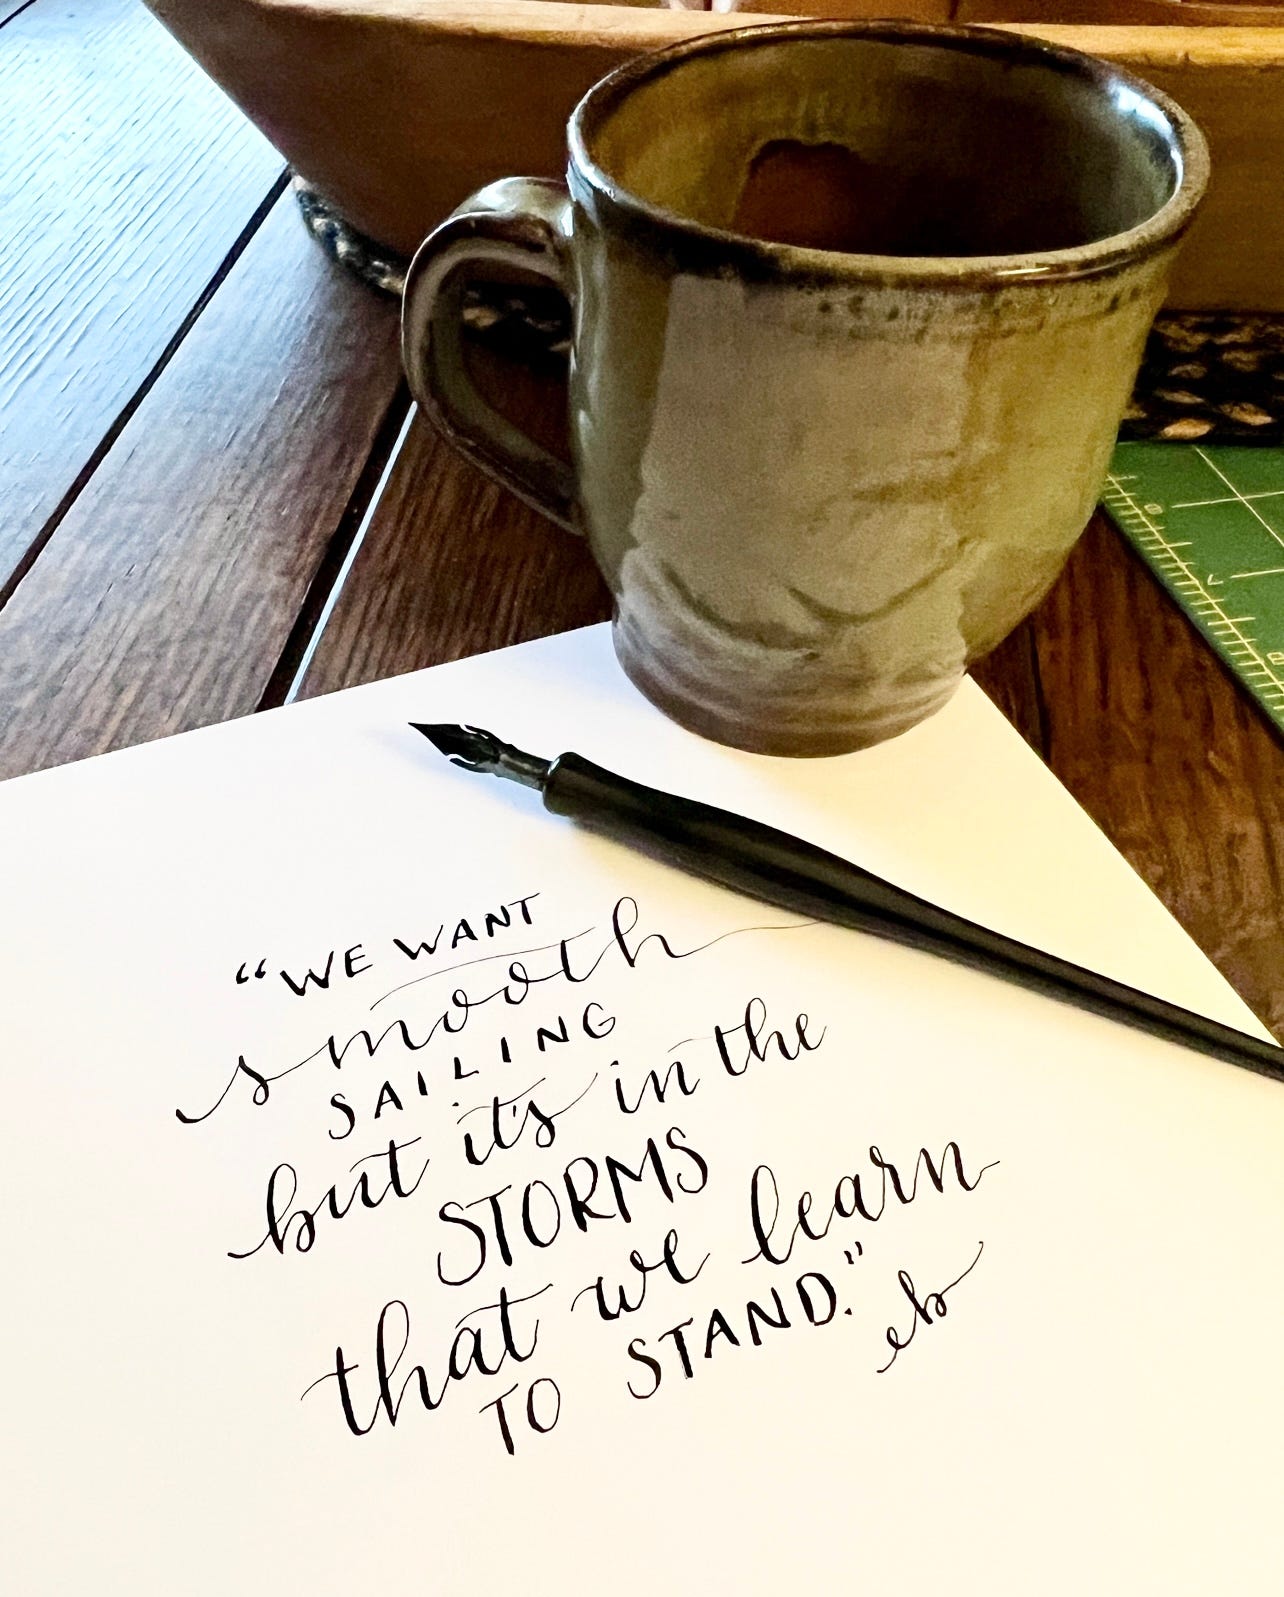 “WE WANT
smooth
SAILING
but it's in the
STORMS
that we learn
TO STAND.”
eb